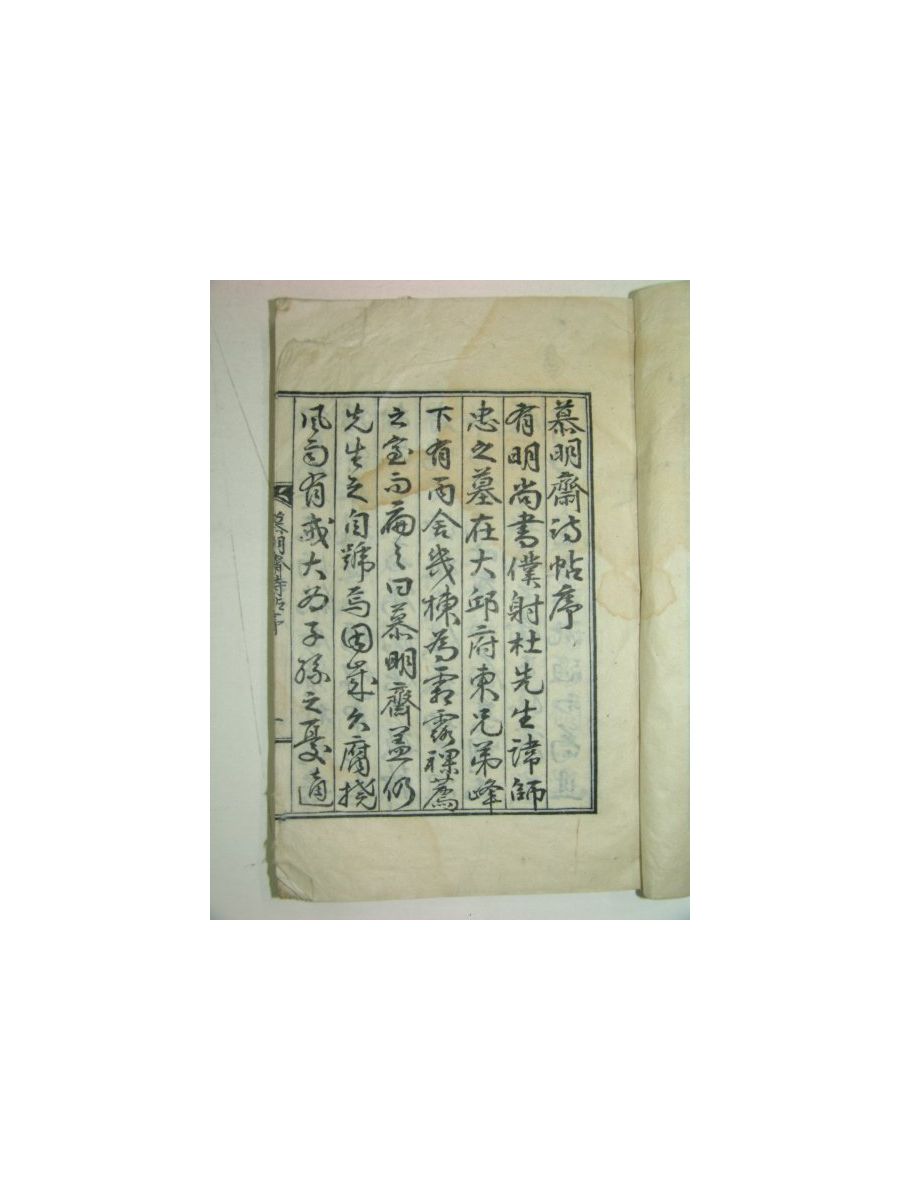 慕明齋詩帖序
有明尚書僕射杜先生諱師
忠之墓在大邱府東兄弟峰
下有丙舍幾棟為霜露祼薦
之室而扁之曰慕明齋盖仍
先生之自號焉因歲久腐撓
風雨有戒大為子孫之憂適
慕明齋詩帖序
一